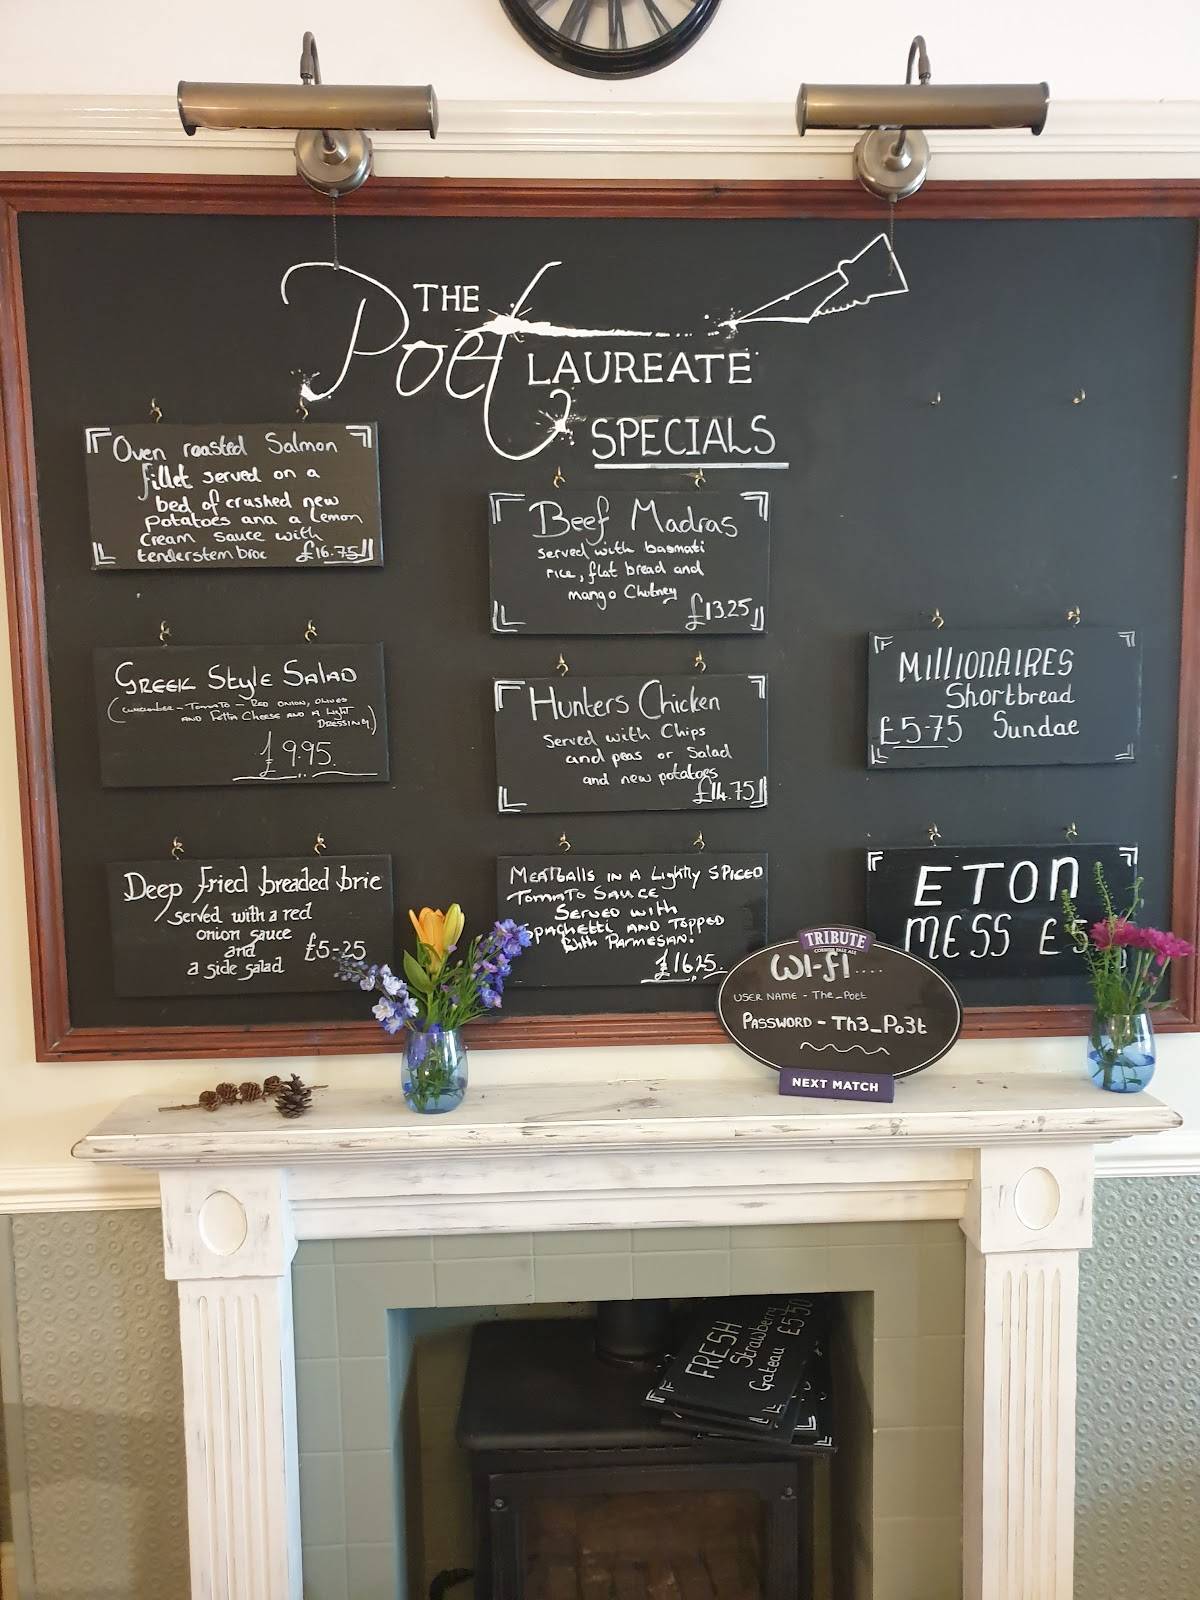 THE
Poet
LAUREATE
SPECIALS
Oven roasted Salmon
fillet served on a
bed of crushed new
potatoes and a Lemon
Cream sauce with
tenderstem broc £16.75
GREEK Style SALAD
(cucumber - Tomato - RED ONION, OLIVES
AND Fetta CHEESE AND A Light
DRESSING)
£9.95
Deep fried breaded brie
served with a red
onion sauce
and £5-25
a side salad
Beef Madras
served with basmati
rice, flat bread and
mango Chutney
£13.25
Hunters Chicken
Served with Chips
and peas or Salad
and new potatoes
£14.75
MEATBALLS IN A Lightly SPICED
TOMATO SAUCE
SERVED with
SPAGHETTI AND TOPPED
with PARMESAN.
£16.25
MILLIONAIRES
Shortbread
£5-75 Sundae
ETON
MESS £5
TRIBUTE
CORNISH PALE ALE
WI-FI....
USER NAME - The_Poet
PASSWORD - Th3_Po3t
NEXT MATCH
FRESH
Strawberry
Gateau £5.50